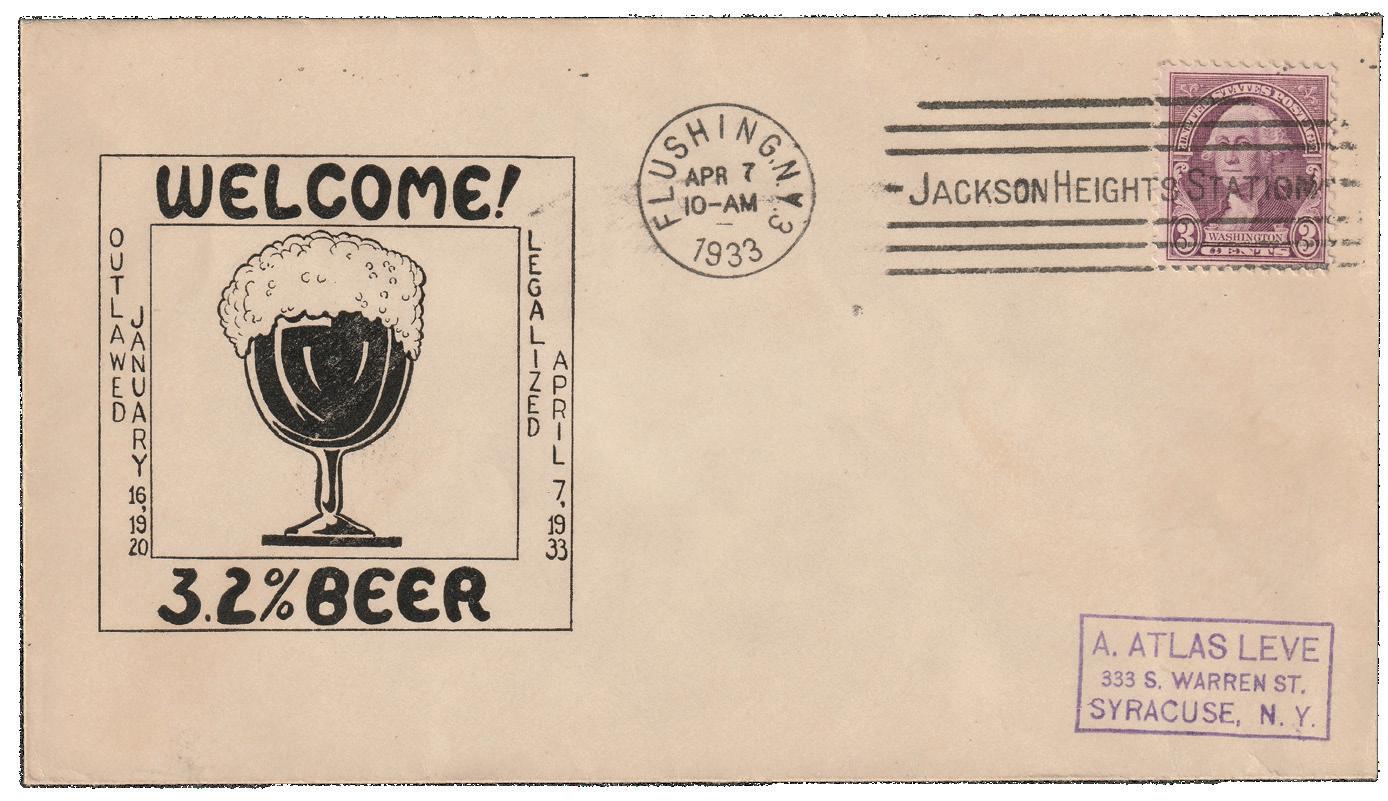 WELCOME!
OUTLAWED
JANUARY 16, 1920
LEGALIZED
APRIL 7, 1933
3.2% BEER
FLUSHING, N.Y. 3
APR 7
10-AM
1933
JACKSON HEIGHTS STATION
UNITED STATES POSTAGE
3 WASHINGTON 3
CENTS
A. ATLAS LEVE
333 S. WARREN ST.
SYRACUSE, N. Y.